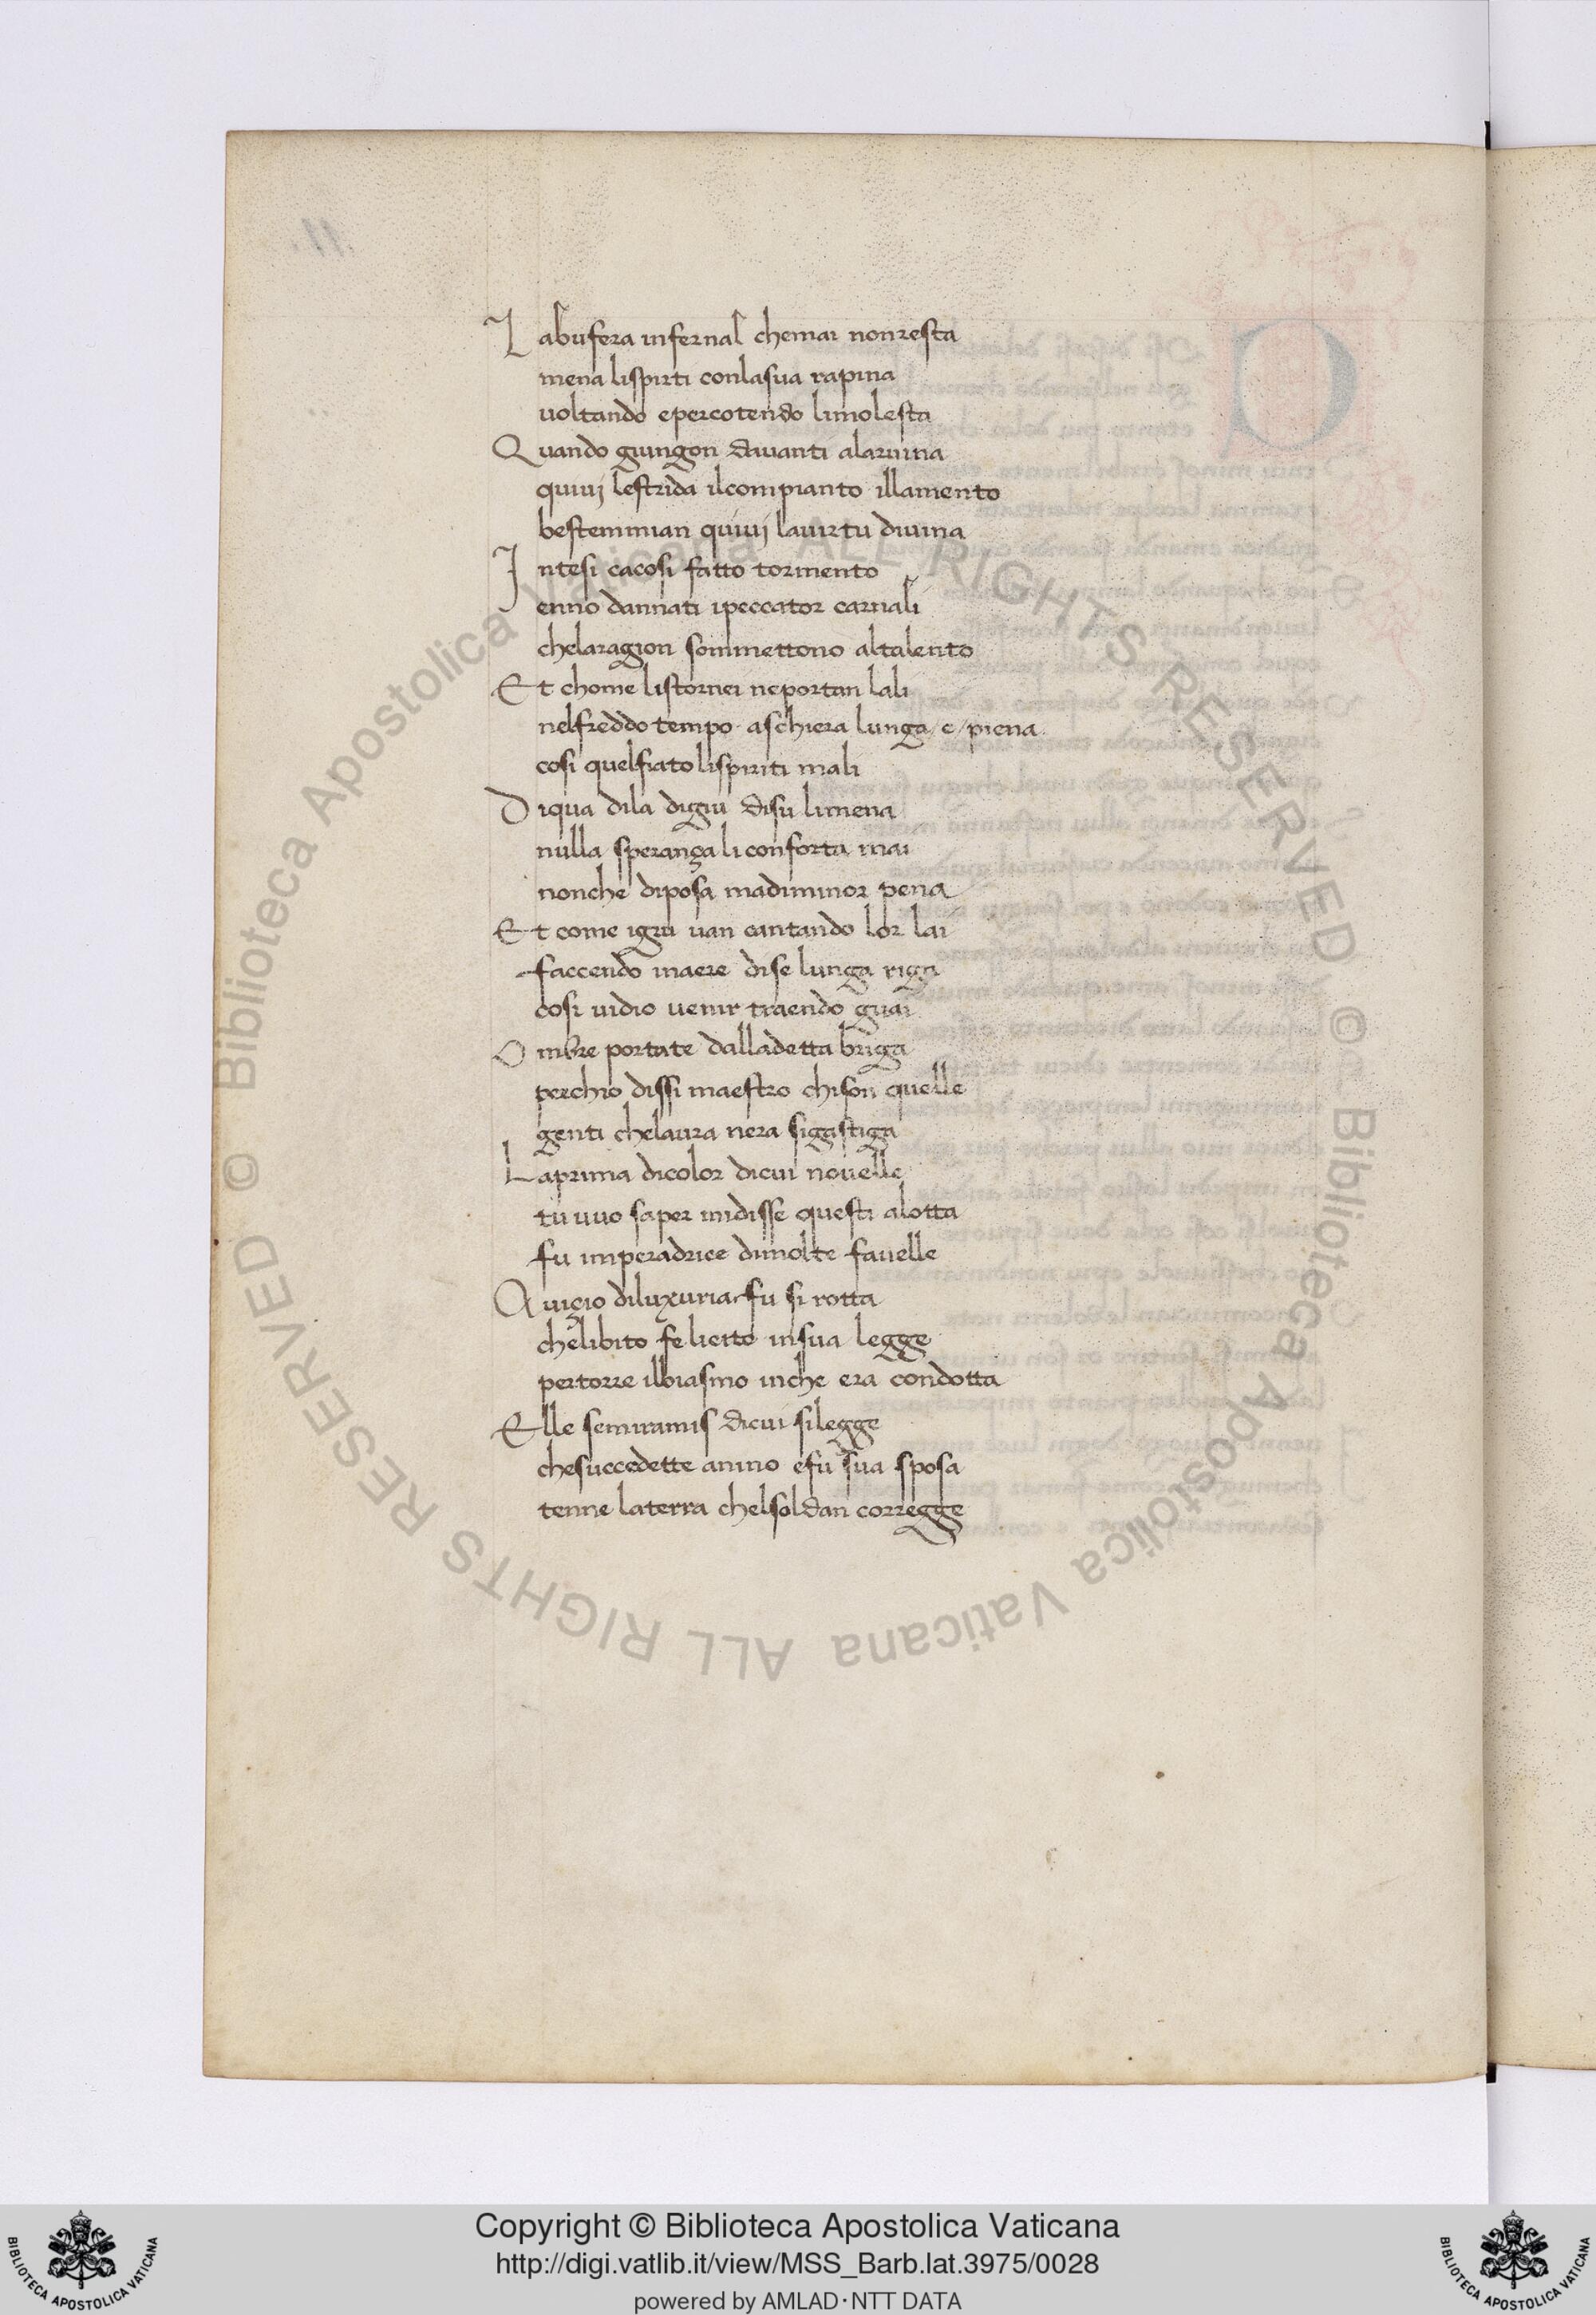 L abufera infernal chemai nonresta
mena lispirti conlasua rapina
uoltando epercotendo limolesta
Q uando giungon dauanti alaruina
quiuj lestrida ilcompianto illamento
bestemmian quiuj lauirtu diuina
I ntesi cacosi fatto tormento
enno dannati ipeccator carnali
chelaragion sommettono altalento
E t chome listornei neportan lali
nelfreddo tempo aschiera lunga / e / piena
cosi quelfiato lispiriti mali
D iqua dila digiu disu limena
nulla sperança li conforta mai
nonche diposa madiminor pena
E t come igru uan cantando lor lai
faccendo inaere dise lunga riga
cosi uidio uenir traendo guai
O mbre portate dalladetta briga
perchio dissi maestro chison quelle
genti chelaura nera sigastiga
L aprima dicolor dicui nouelle
tu uuo saper midisse questi alotta
fu imperadrice dimolte fauelle
A uiçio diluxuria fu si rotta
chelibito fe licito insua legge
pertorre ilbiasmo inche era condotta
E lle semiramis dicui silegge
chesuccedette anino efu sua sposa
tenne laterra chelsoldan corregge
© Biblioteca Apostolica Vaticana ALL RIGHTS RESERVED
© Biblioteca Apostolica Vaticana ALL RIGHTS RESERVED
Copyright © Biblioteca Apostolica Vaticana
http://digi.vatlib.it/view/MSS_Barb.lat.3975/0028
powered by AMLAD·NTT DATA
BIBLIOTECA APOSTOLICA VATICANA
BIBLIOTECA APOSTOLICA VATICANA